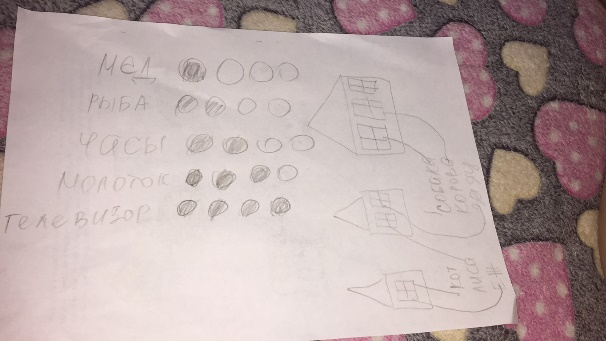 МЕД
РЫБА
ЧАСЫ
МОЛОТОК
ТЕЛЕВИЗОР
СОБАКА
КОРОВА
КОТ
ЛИСА
ЁЖ